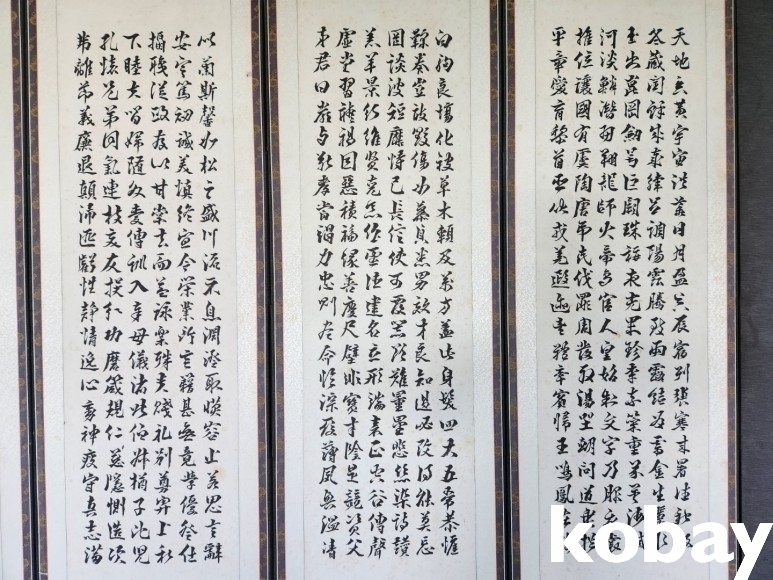 天地玄黃宇宙洪荒日月盈昃辰宿列張寒來暑往秋收
冬藏閏餘成歲律呂調陽雲騰致雨露結為霜金生麗水
玉出崑岡劍号巨闕珠稱夜光果珍李柰菜重芥薑海鹹
河淡鱗潛羽翔龍師火帝鳥官人皇始制文字乃服衣裳
推位讓國有虞陶唐弔民伐罪周發殷湯坐朝問道垂拱
平章愛育黎首臣伏戎羌遐邇壹體率賓歸王鳴鳳在
白駒食場化被草木賴及萬方蓋此身髮四大五常恭惟
鞠養豈敢毀傷女慕貞烈男效才良知過必改得能莫忘
罔談彼短靡恃己長信使可覆器欲難量墨悲絲染詩讚
羔羊景行維賢克念作聖德建名立形端表正空谷傳聲
虛堂習聽禍因惡積福緣善慶尺璧非寶寸陰是競資父
事君曰嚴与敬孝當竭力忠則盡命臨深履薄夙興溫清
似蘭斯馨如松之盛川流不息淵澄取暎容止若思言辭
安定篤初誠美慎終宜令榮業所基籍甚無竟學優登仕
攝職從政存以甘棠去而益詠樂殊貴賤礼別尊卑上和
下睦夫唱婦隨外受傅訓入奉母儀諸姑伯叔猶子比兒
孔懷兄弟同氣連枝交友投分切磨箴規仁慈隱惻造次
弗離節義廉退顛沛匪虧性靜情逸心動神疲守真志滿
kobay